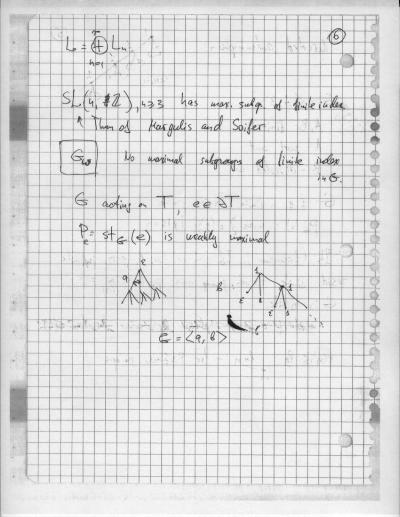 6
L = ⊕ Lₙ
n=1
SL(n, ℤ), n≥3 has max. subgr. of finite index
↑ Thm of Margulis and Soifer
G_ω No maximal subgroups of finite index
in G.
G acting on T, e∈∂T
Pₑ = st_G(e) is weakly maximal
e
a
b
1
1
ε
ε
G = <a, b>